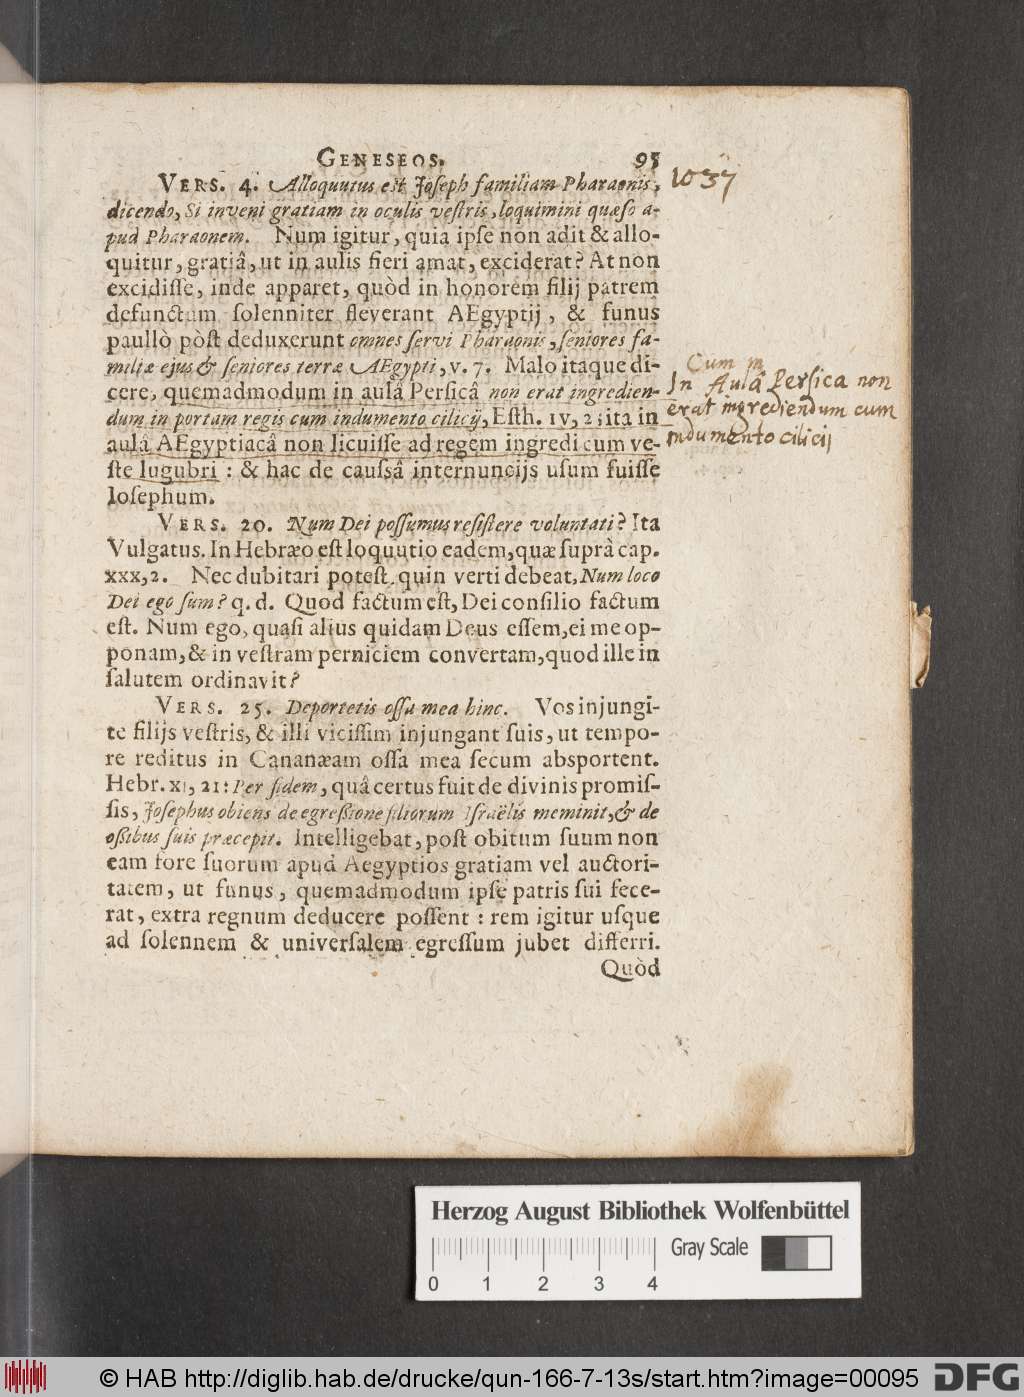 GENESEOS. 95
1037
VERS. 4. Alloquutus est Joseph familiam Pharaonis,
dicendo, Si inveni gratiam in oculis vestris, loquimini quæso a-
pud Pharaonem. Num igitur, quia ipse non adit & allo-
quitur, gratiâ, ut in aulis fieri amat, exciderat? At non
excidisse, inde apparet, quòd in honorem filij patrem
defunctum solenniter fleverant AEgyptij, & funus
paullò pòst deduxerunt omnes servi Pharaonis, seniores fa-
miliæ ejus & seniores terræ AEgypti, v. 7. Malo itaque di-
cere, quemadmodum in aulâ Persicâ non erat ingredien-
dum in portam regis cum indumento cilicij, Esth. IV, 2; ita in
aulâ AEgyptiacâ non licuisse ad regem ingredi cum ve-
ste lugubri: & hac de caussâ internuncijs usum fuisse
Iosephum.
Cum in
In Aulâ Persica non
erat ingrediendum cum
indumento cilicij
VERS. 20. Num Dei possumus resistere voluntati? Ita
Vulgatus. In Hebræo est loquutio eadem, quæ suprà cap.
XXX, 2. Nec dubitari potest, quin verti debeat, Num loco
Dei ego sum? q. d. Quod factum est, Dei consilio factum
est. Num ego, quasi alius quidam Deus essem, ei me op-
ponam, & in vestram perniciem convertam, quod ille in
salutem ordinavit?
VERS. 25. Deportetis ossa mea hinc. Vos injungi-
te filijs vestris, & illi vicissim injungant suis, ut tempo-
re reditus in Cananæam ossa mea secum absportent.
Hebr. XI, 21: Per fidem, quâ certus fuit de divinis promis-
sis, Josephus obiens de egreßione filiorum Israëlis meminit, & de
oßibus suis præcepit. Intelligebat, post obitum suum non
eam fore suorum apud Aegyptios gratiam vel auctori-
tatem, ut funus, quemadmodum ipse patris sui fece-
rat, extra regnum deducere possent: rem igitur usque
ad solennem & universalem egressum jubet differri.
Quòd
Herzog August Bibliothek Wolfenbüttel
Gray Scale
0 1 2 3 4
© HAB http://diglib.hab.de/drucke/qun-166-7-13s/start.htm?image=00095
DFG